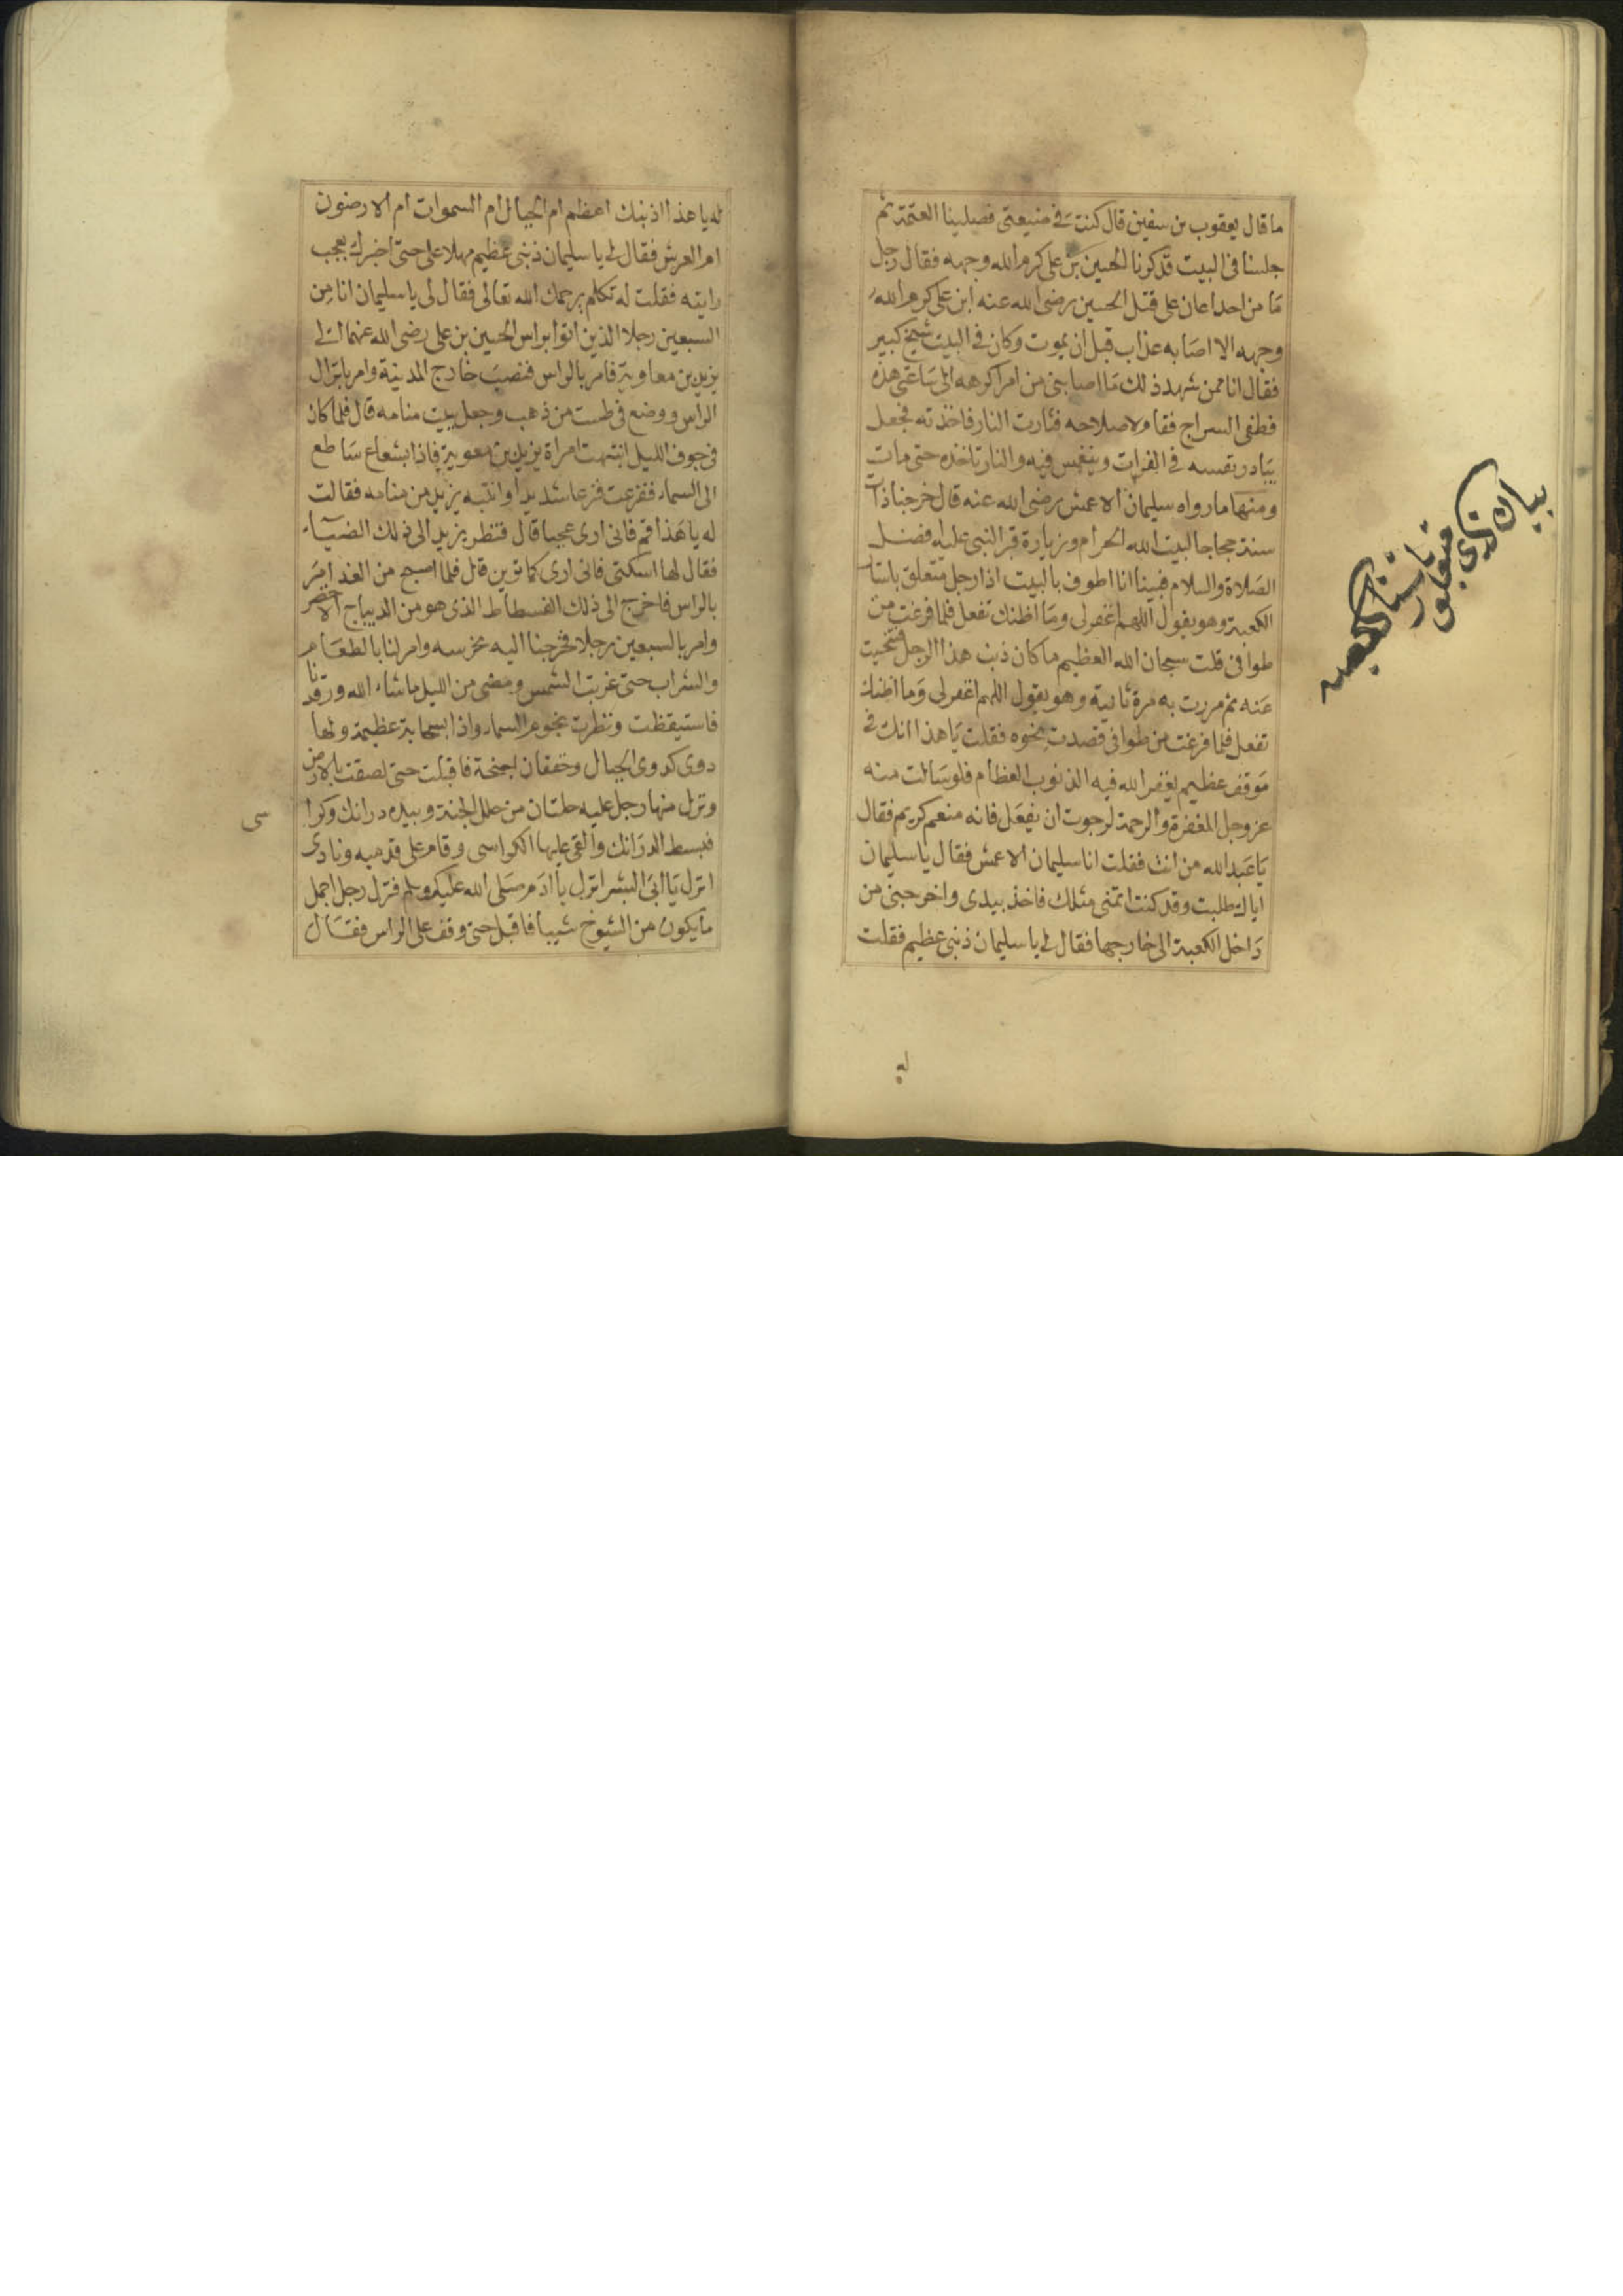 ما قال يعقوب بن سفين قال كنت في ضيعتي فصلينا العتمة ثم
جلسنا في البيت قذكرنا الحسين بن علي كرم الله وجهه فقال رجل
ما من احد اعان على قتل الحسين رضى الله عنه ابن علي كرم الله
وجهه الا اصابه عذاب قبل ان يموت وكان في البيت شيخ كبير
فقال انا ممن شهد ذلك ما اصابني من امر اكرهه الى ساعتي هذه
فطفى السراج فقام لاصلاحه فثارت النار فاخذته فجعل
يبادر بقسه في الفرات وينغمس فيه والنار تاخذه حتى مات
ومنها ما رواه سليمان الاعمش رضى الله عنه قال خرجنا ذات
سنة حجاجا لبيت الله الحرام وزيارة قبر النبي عليه افضل
الصلاة والسلام فبينا انا اطوف بالبيت اذا رجل متعلق باستار
الكعبة وهو يقول اللهم اغفر لى وما اظنك تفعل فلما فرغت من
طوافى قلت سبحان الله العظيم ما كان ذنب هذا الرجل فتنحيت
عنه ثم مررت به مرة ثانية وهو يقول اللهم اغفر لى وما اظنك
تفعل فلما فرغت من طوافى قصدت نحوه فقلت يا هذا انك في
موقف عظيم يغفر الله فيه الذنوب العظام فلو سالت منه
عز وجل المغفرة والرحمة لرجوت ان يفعل فانه منعم كريم فقال
يا عبد الله من انت فقلت انا سليمان الاعمش فقال يا سليمان
اياك طلبت وقد كنت اتمنى مثلك فاخذ بيدى واخرجني من
داخل الكعبة الى خارجها فقال لي يا سليمان ذنبي عظيم فقلت
له
له يا هذا اذنبك اعظم ام الجبال ام السموات ام الارضون
ام العرش فقال لي يا سليمان ذنبى عظيم مهلا على حتى اخبرك بعجب
رايته فقلت له تكلم يرحمك الله تعالى فقال لى يا سليمان انا من
السبعين رجلا الذين اتوا براس الحسين بن على رضى الله عنهما الى
يزيد بن معاوية فامر بالراس فنصب خارج المدينة وامر بانزال
الراس ووضع في طست من ذهب وجعل ببيت منامه قال فلما كان
في جوف الليل انتبهت امراة يزيد بن معوية فاذا بشعاع ساطع
الى السماء ففزعت فزعا شديدا وانتبه يزيد من منامه فقالت
له يا هذا قم فانى ارى عجبا قال فنظر يزيد الى ذلك الضياء
فقال لها اسكتى فانى ارى كما ترين قال فلما اصبح من الغد امر
بالراس فاخرج الى ذلك الفسطاط الذى هو من الديباج الاخضر
وامر بالسبعين رجلا فخرجنا اليه نحرسه وامر لنا بالطعام
والشراب حتى غربت الشمس ومضى من الليل ما شاء الله ورقدنا
فاستيقظت ونظرت نحو السماء واذا بسحابة عظيمة ولها
دوى كدوى الجبال وخفقان اجنحة فاقبلت حتى لصقت بالارض
ونزل منها رجل عليه حلتان من حلل الجنة وبيده درانك وكرا
سى
فبسط الدرانك والقى عليها الكراسى وقام على قدميه ونادى
انزل يا ابى البشر انزل يا ادم صلى الله عليك وسلم فنزل رجل اجمل
ما يكون من الشيوخ شيبا فاقبل حتى وقف على الراس فقال